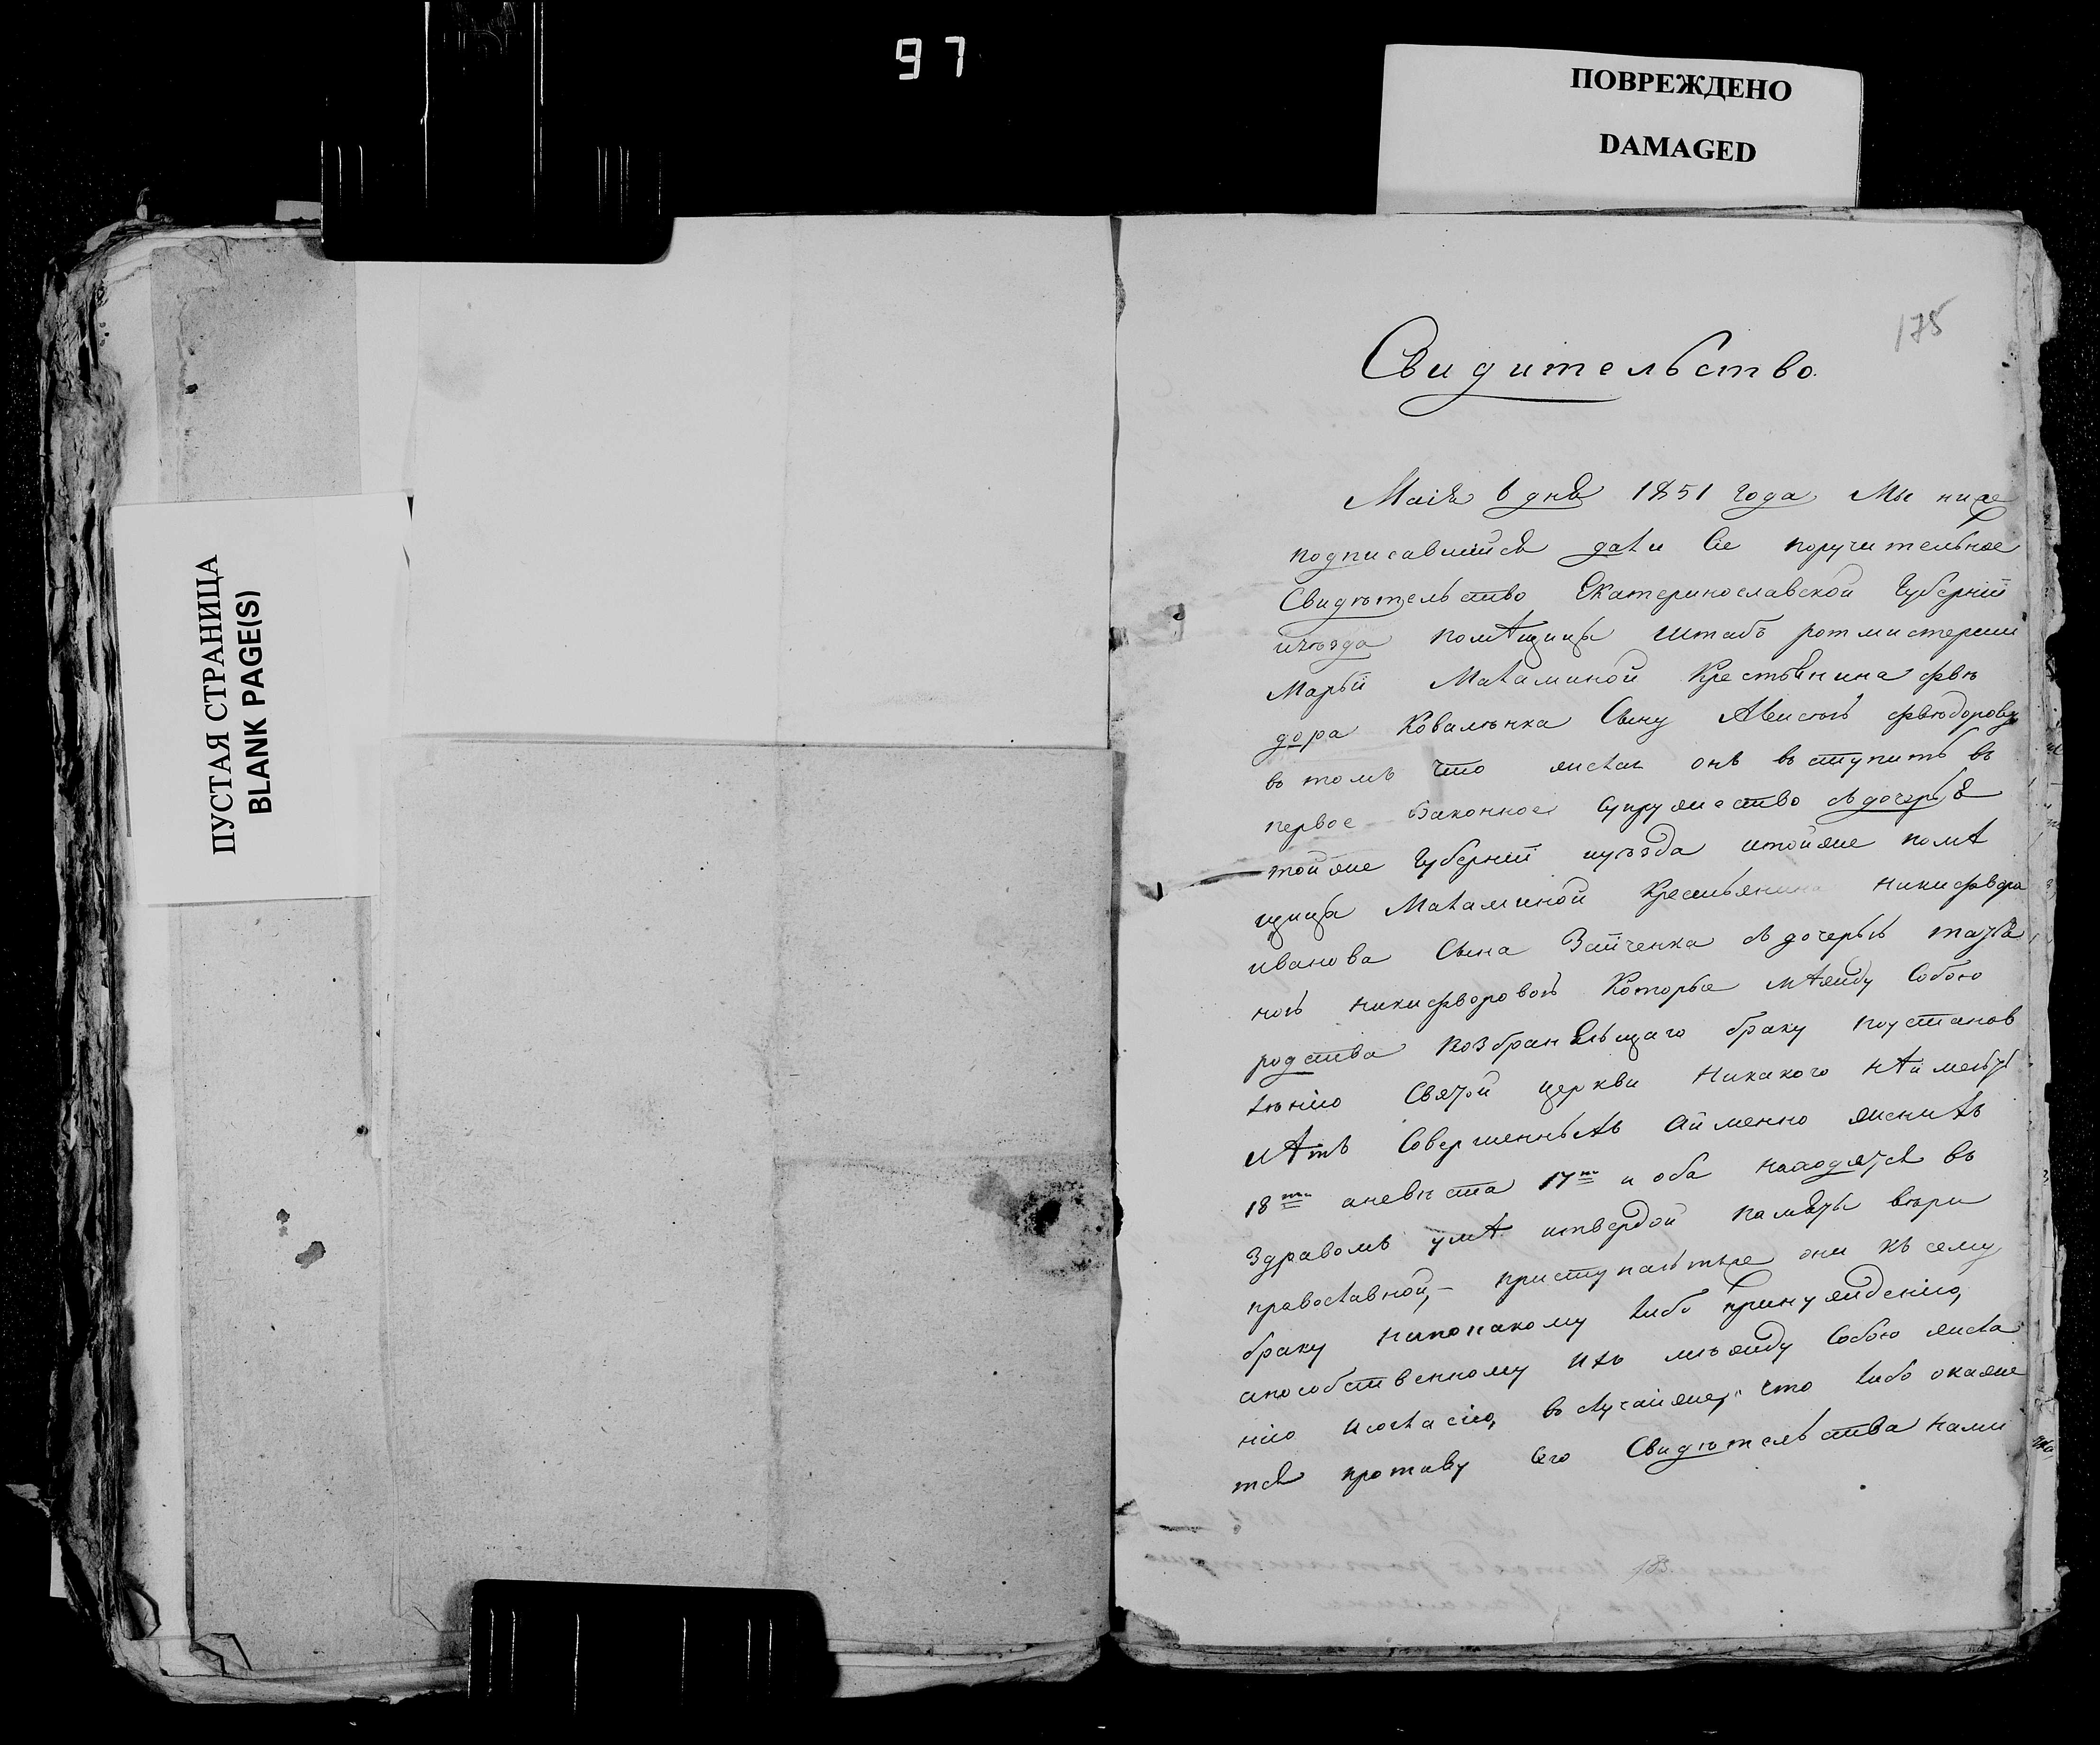 97
ПОВРЕЖДЕНО
DAMAGED
ПУСТАЯ СТРАНИЦА
BLANK PAGE(S)
175
Свидительство.
Маія 6 дня 1851 года Мы ниже
подписавшийся дали сіе поручительное
Свидѣтельство Екатеринославской Губерніи
иуѣзда помещицы Штабъ ротмистерши
Марьи Маламиной Крестьянина Фѣ
дора Ковалѣнка Сыну Фѣодорову
въ томъ что желаи онъ въступить въ
первое Законное супружество съдочерью
тойже Губерніи иуѣзда итойже поме
щицы Маламиной Крестьянина Никифора
иванова Сына Зайченка съдочерью татья
ною Никифоровою Которые между Собою
родства возбраняющаго браку поустанов
лѣнію Святой церкви Никакого неимеютъ
летъ Совершенныхъ Аименно женихъ
18ти аневѣста 17ти и оба находятся въ
Здравомъ уме итвердой памяты вѣри
православной,- приступаютже они къ сему
браку нипокакому либо принуждению,
апособственному ихъ мѣжду Собою жела
нію исогласію, въслучаиже, что либо окаже
тся противу сего Свидѣтельства нами